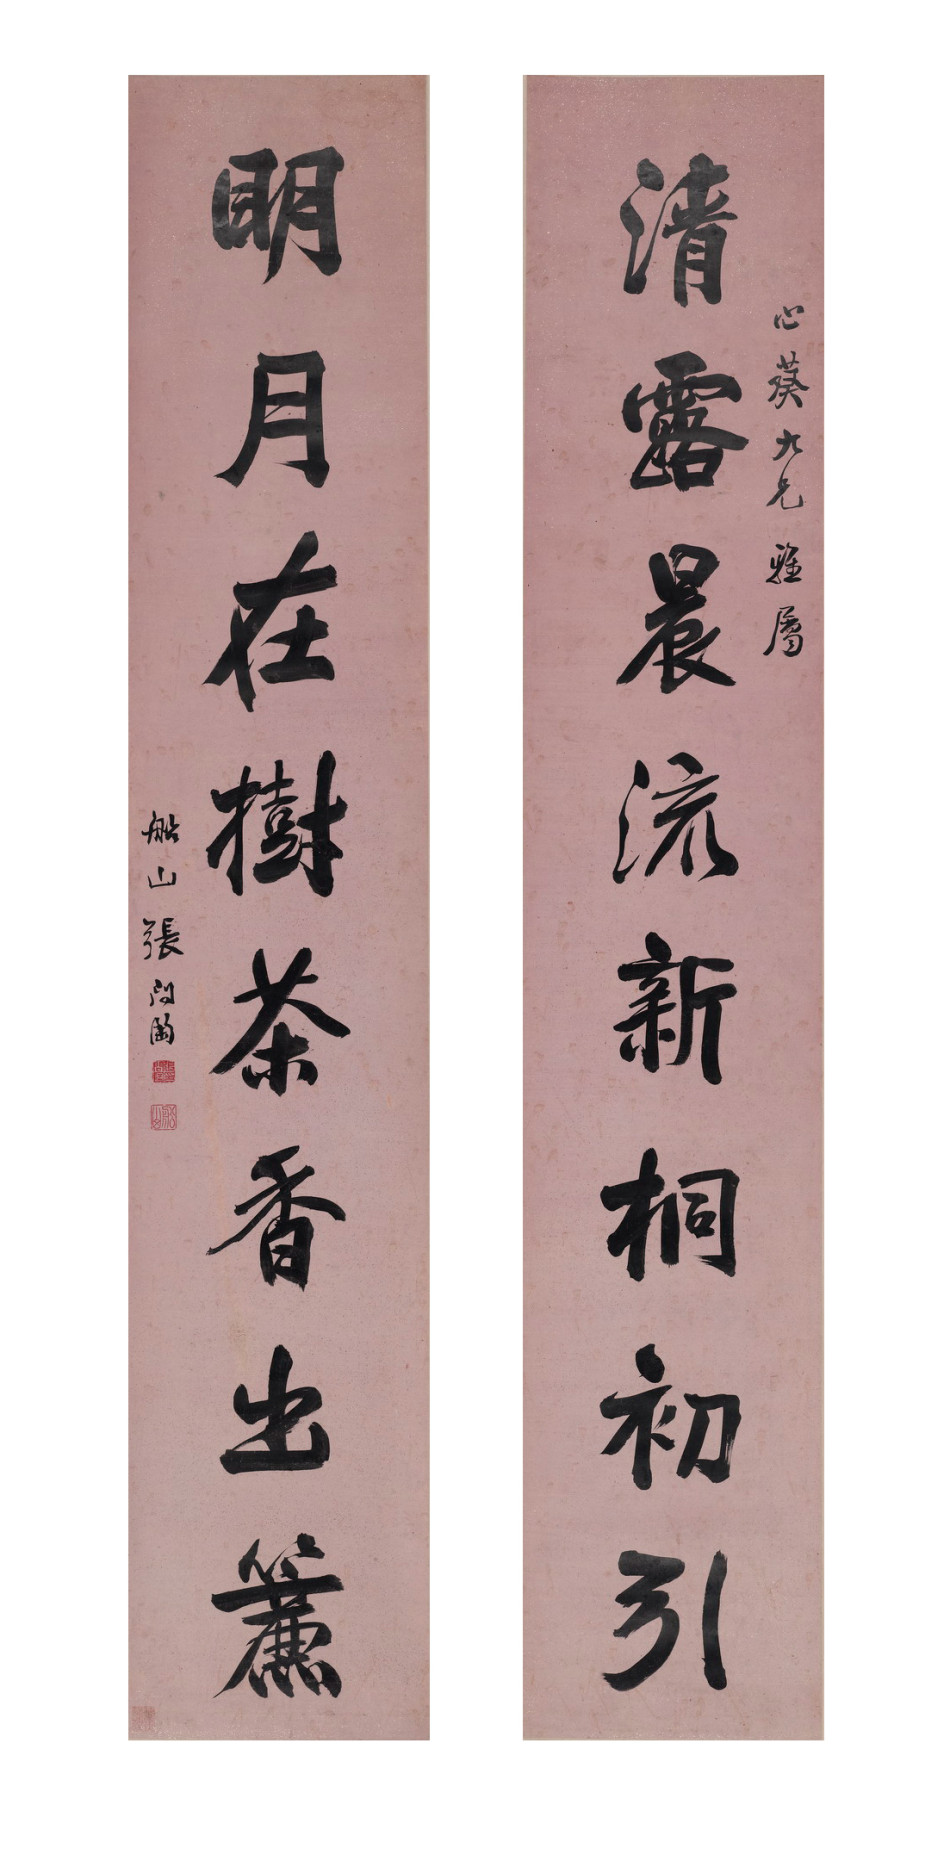 心葵九兄雅屬
清露晨流新桐初引
明月在樹茶香出簾
船山張問陶